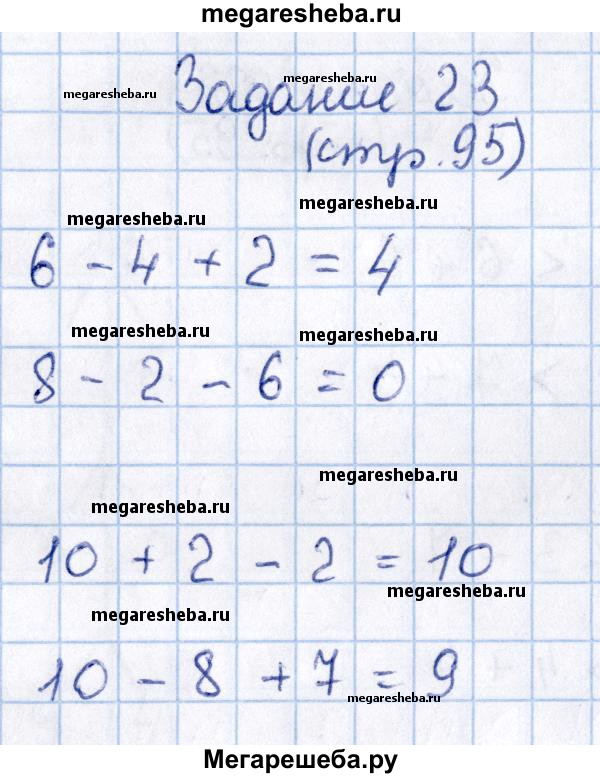 megaresheba.ru
megaresheba.ru
megaresheba.ru
Задание 23
(стр. 95)
megaresheba.ru
megaresheba.ru
6 - 4 + 2 = 4
megaresheba.ru
megaresheba.ru
8 - 2 - 6 = 0
megaresheba.ru
megaresheba.ru
10 + 2 - 2 = 10
megaresheba.ru
megaresheba.ru
10 - 8 + 7 = 9
megaresheba.ru
Мегарешеба.ру